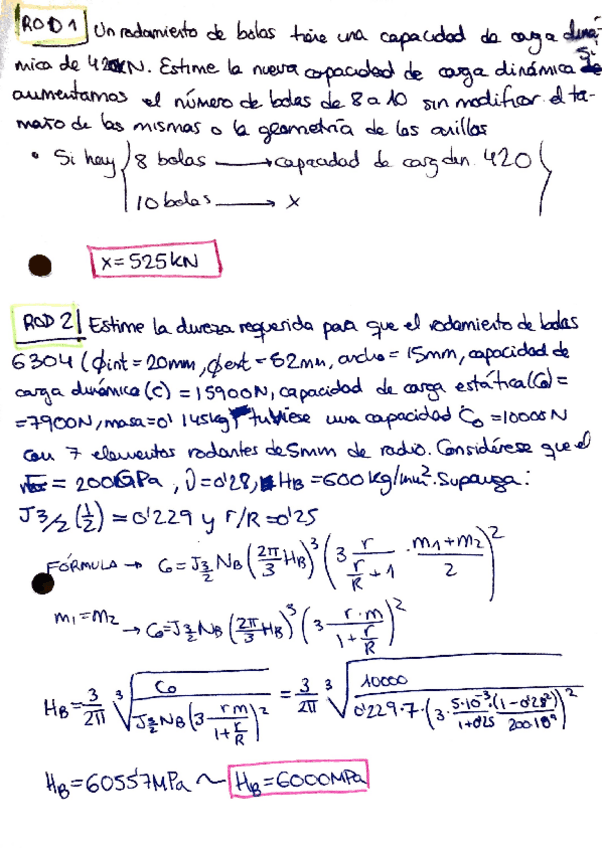 ROD 1 Un rodamiento de bolas tiene una capacidad de carga diná-
mica de 420kN. Estime la nueva capacidad de carga dinámica si
aumentamos el número de bolas de 8 a 10 sin modificar el ta-
maño de las mismas o la geometría de los anillos
• Si hay { 8 bolas → capacidad de carg din. 420
10 bolas → x
x = 525 kN
ROD 2 Estime la dureza requerida para que el rodamiento de bolas
6304 (ϕint = 20mm, ϕext = 52mm, ancho = 15mm, capacidad de
carga dinámica (C) = 15900N, capacidad de carga estática (C0) =
= 7900N, masa = 0'145kg) tuviese una capacidad C0 = 10000N
con 7 elementos rodantes de 5mm de radio. Considérese que el
E = 200GPa, ν = 0'28, HB = 600 kg/mm². Suponga:
J3/2 (1/2) = 0'229 y r/R = 0'25
FÓRMULA → C0 = J3/2 NB (2π/3 HB)³ (3 r/(r/R + 1) · (m1+m2)/2)²
m1 = m2 → C0 = J3/2 NB (2π/3 HB)³ (3 r·m/(1 + r/R))²
HB = 3/2π ∛(C0/(J3/2 NB (3 rm/(1 + r/R))²)) = 3/2π ∛(10000/(0'229·7·(3· 5·10⁻³/(1+0'25) · (1-0'28²)/(200·10⁹))²))
HB = 6055'7MPa ~ HB = 6000MPa